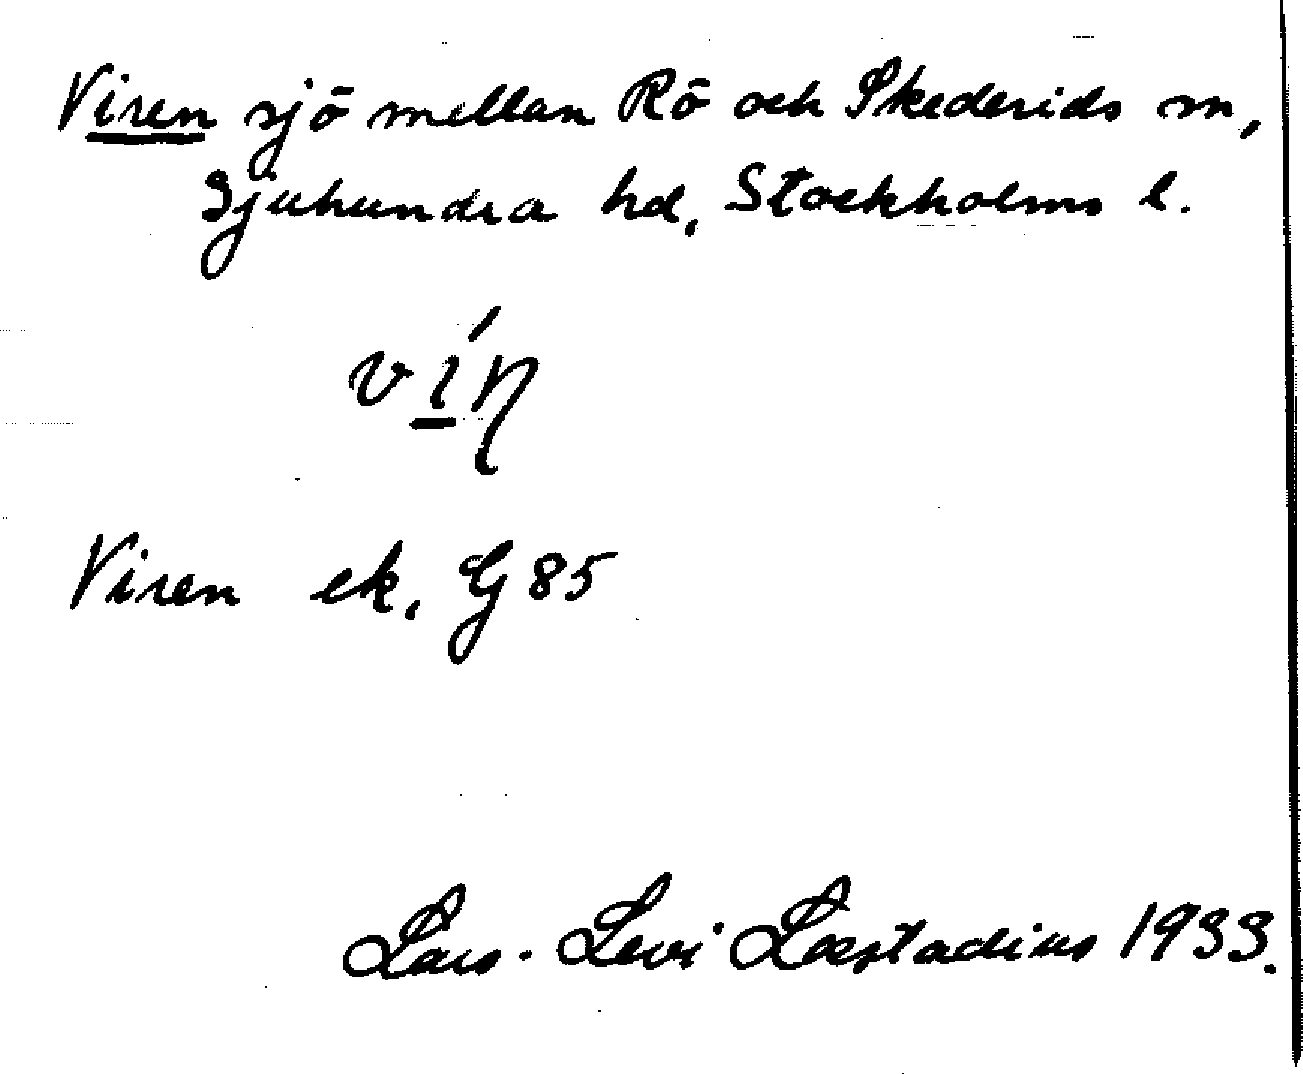 Viren sjö mellan Rö och Skederids sn,
Sjuhundra hd, Stockholms l.
Viren ek. G 85
Lars-Levi Læstadius 1933.